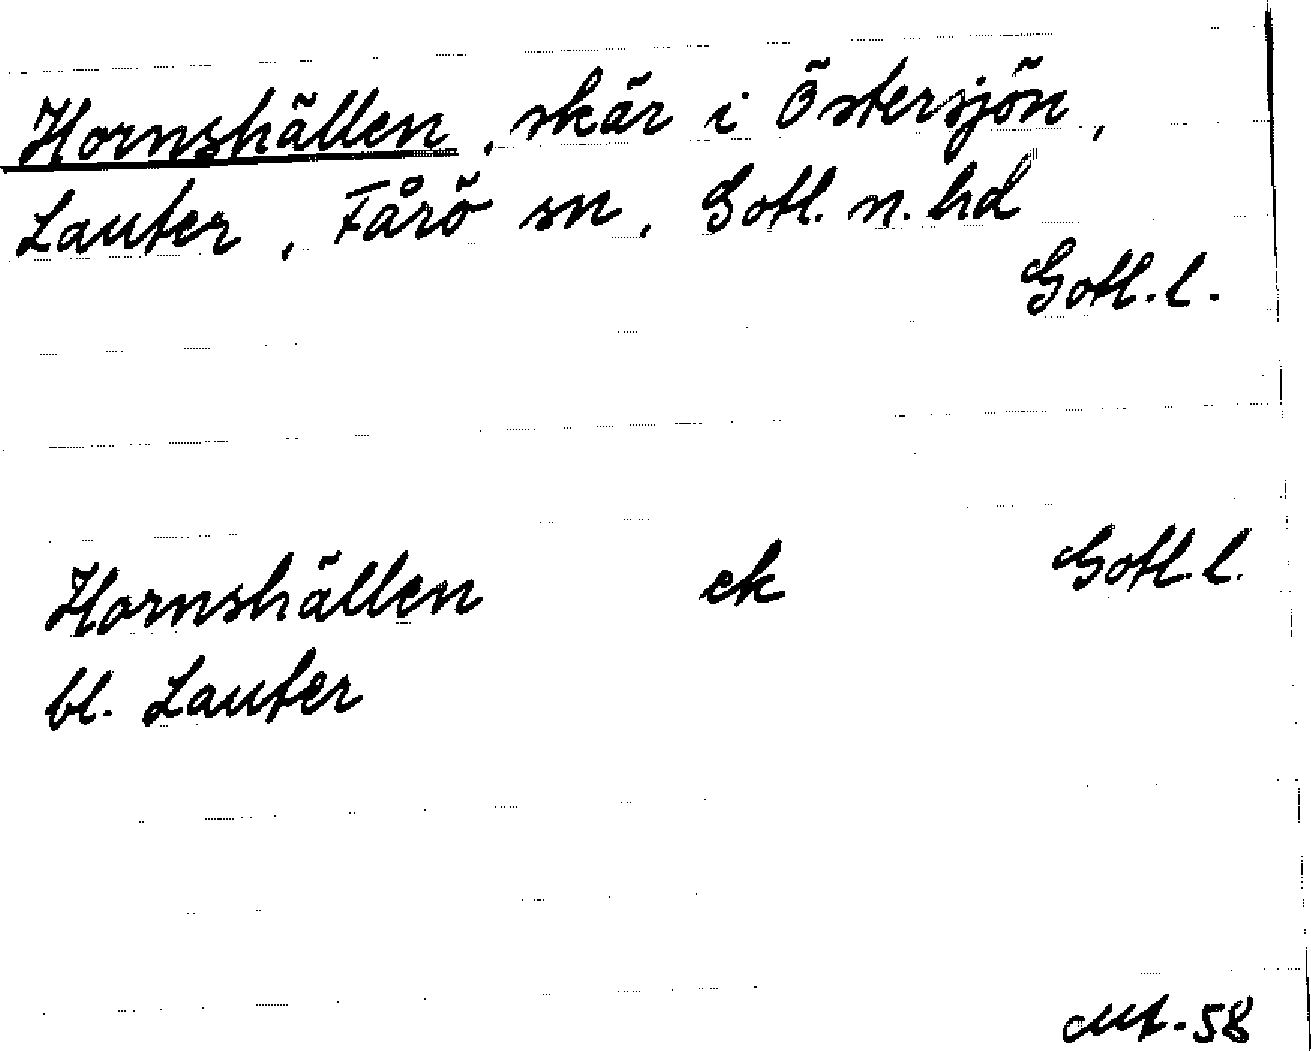 Hornshällen, skär i Östersjön,
Lauter, Fårö sn, Gotl. n. hd
Gotl. l.
Hornshällen ek Gotl. l.
bl. Lauter
-58